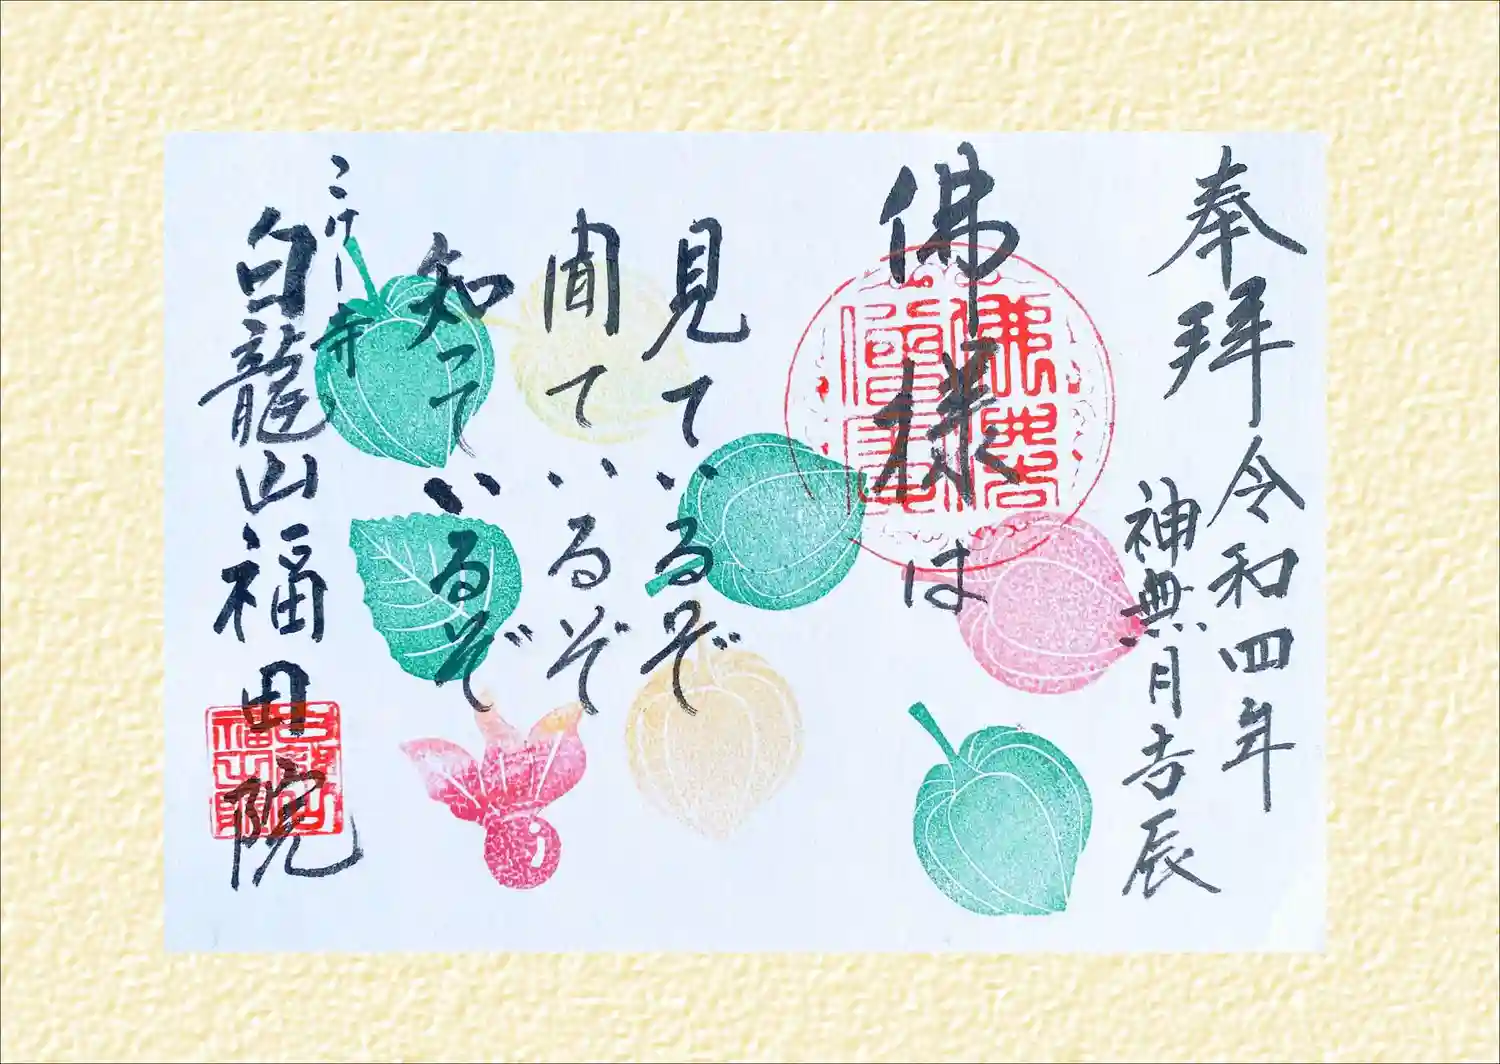 奉拝
令和四年
神無月吉辰
佛様は
見ているぞ
聞いているぞ
知っているぞ
こけ寺
白龍山福田院